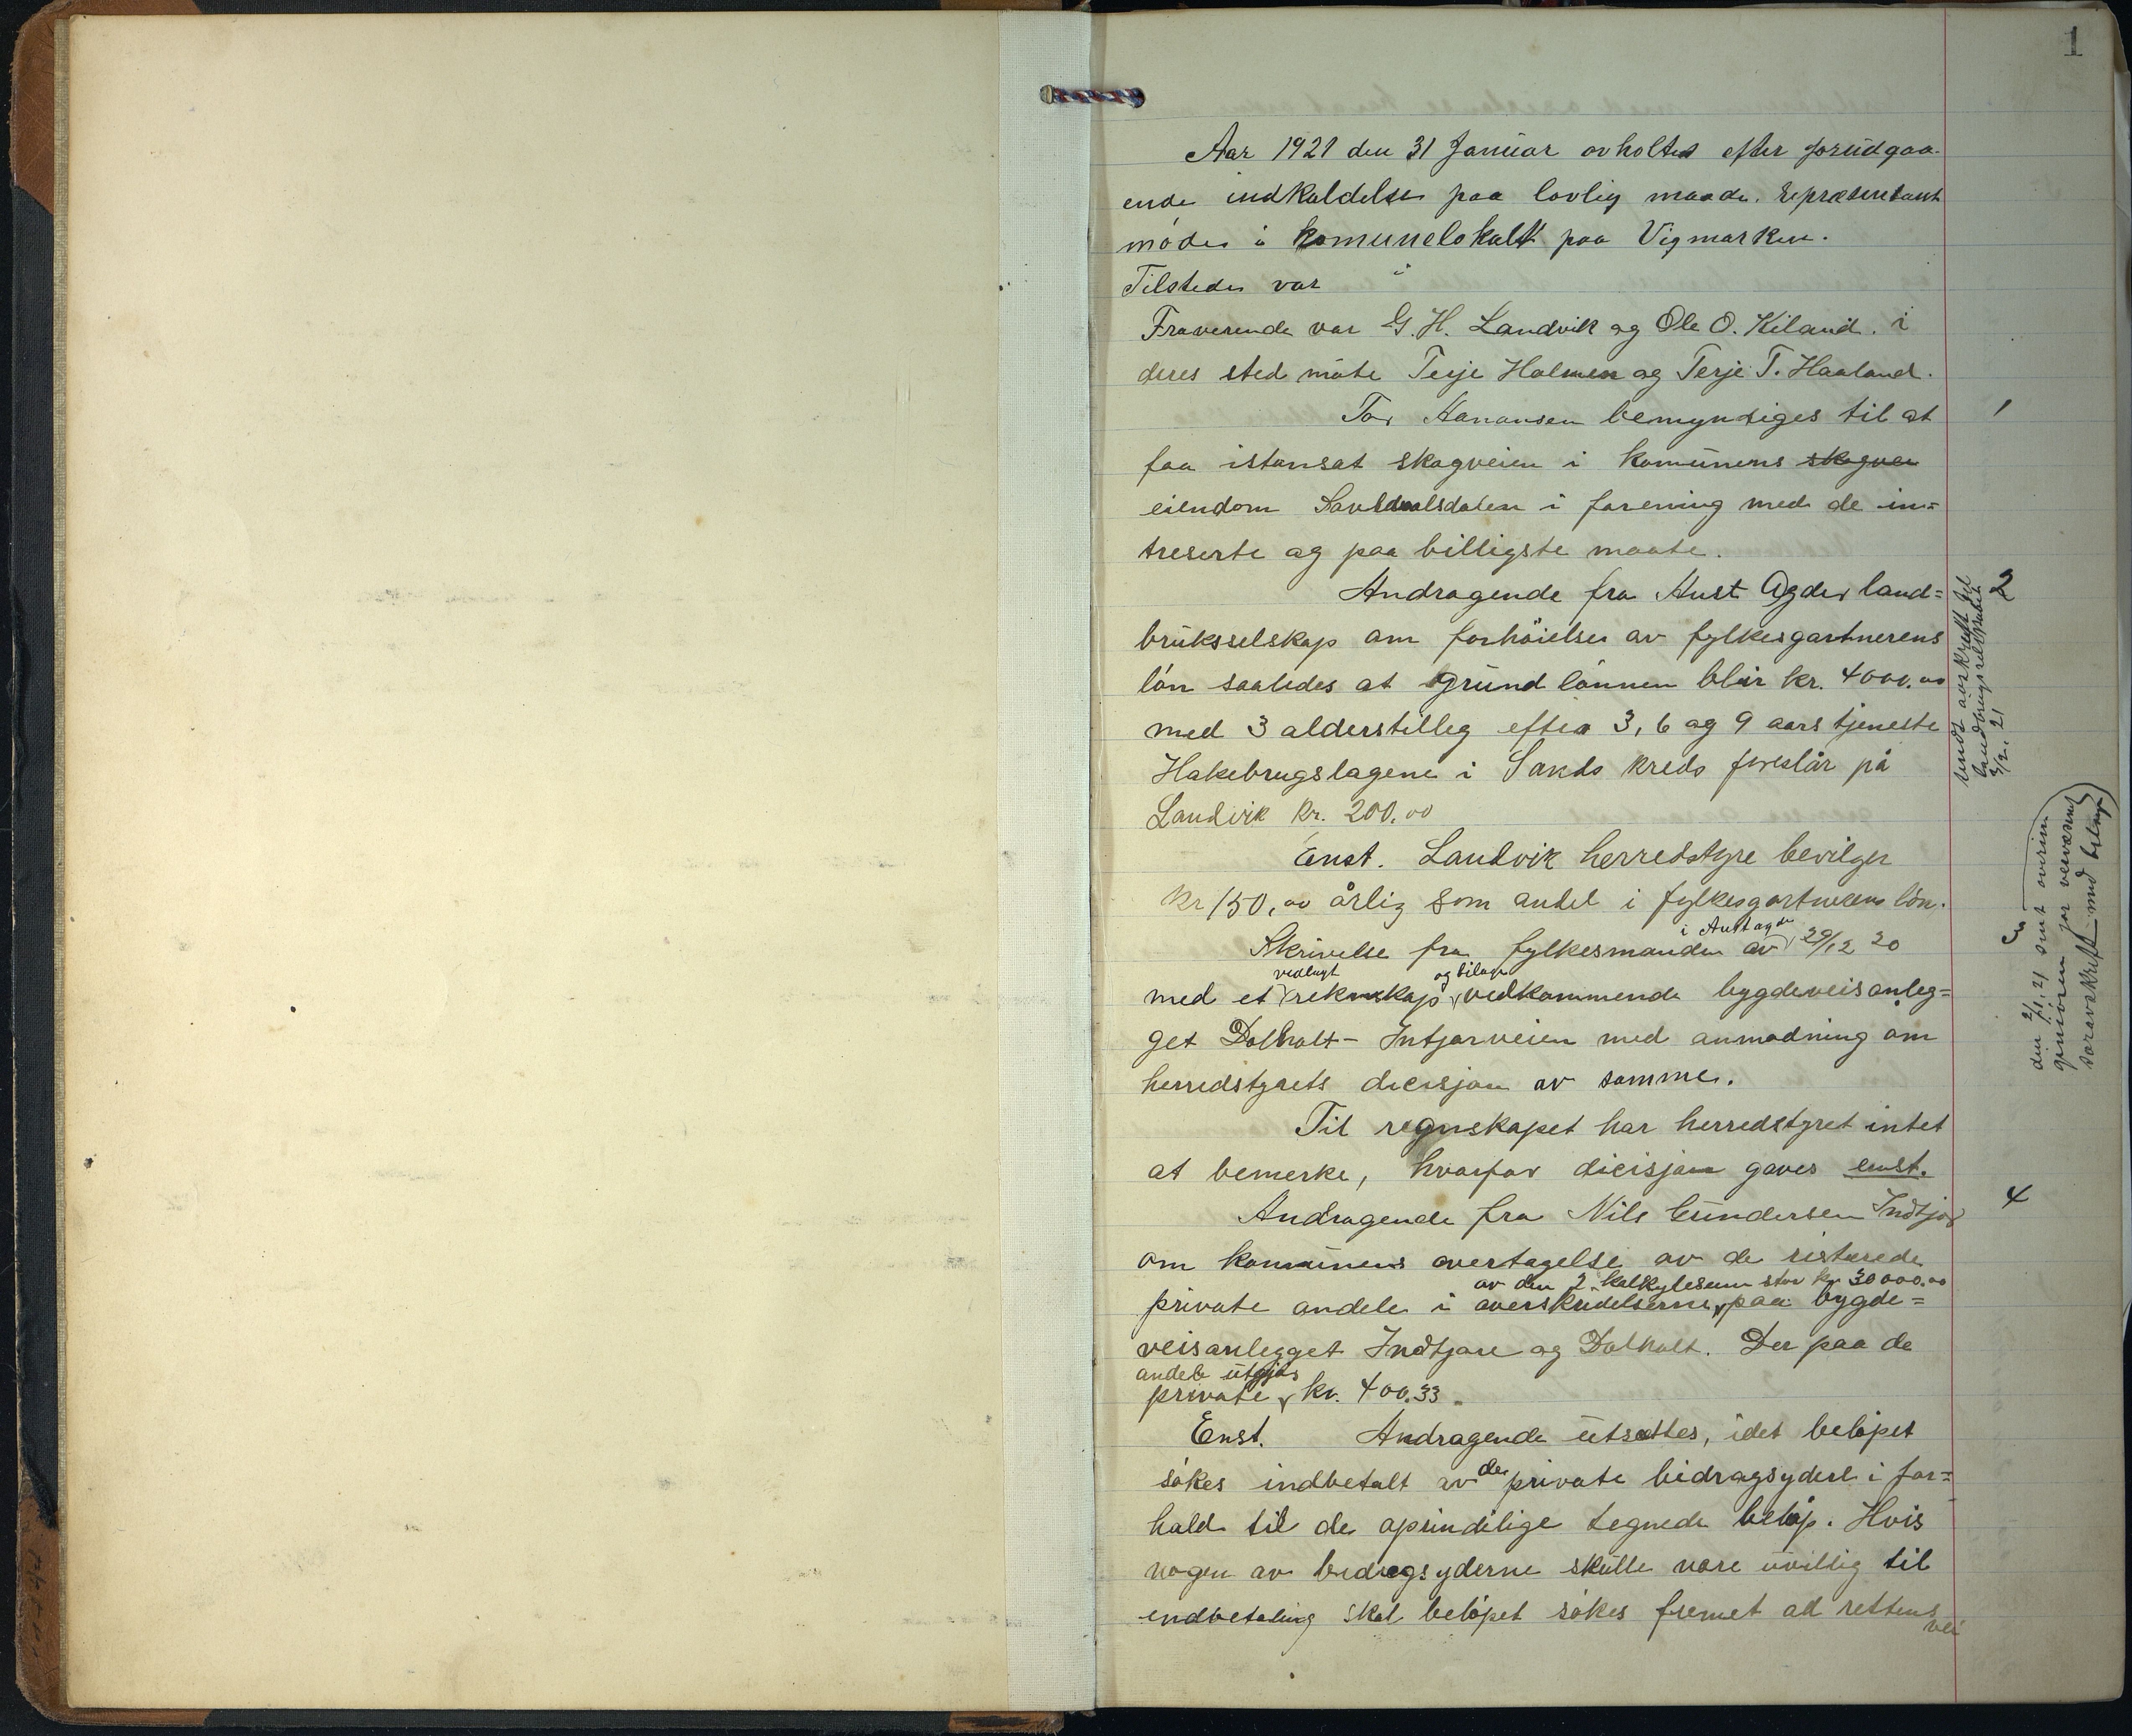 1
Aar 1921 den 31 Januar avholtes efter forudgaa-
ende indkaldelse paa lovlig maade. Repræsentant
möde i komunelokalt paa Vigmarken.
Tilstede var
Fraverende var G. H. Landvik og Ole O. Kiland. i
deres sted möte Terje Holmen og Terje T. Haaland.
1
Tor Aanonsen bemyndiges til at
faa istansat skogveien i komunens skogvei
eiendom i forening med de in=
treserte og paa billigste maate.
2
Andragende fra Aust Agder land=
bruksselskap om forhöielse av fylkesgartnerens
lön saaledes at grundlönnen blir kr. 4000.00
med 3 alderstilleg efter 3, 6 og 9 aars tjeneste
Hakebrugslagene i Sands kreds foreslår på
Landvik kr. 200.00
sendt avskrift til
landbrugsselskabet
3/2. 21
Enst. Landvik herredstyre bevilger
kr 150,00 årlig som andel i fylkesgartnerens lön.
3
Skrivelse fra fylkesmanden i Aust agder av 29/12 20
med et vedlagt reknskap og bilage vedkommende bygdeveisanleg=
get Dolholt - Intjorveien med anmodning om
herredstyrets dicisjon av samme.
Til regnskapet har herredstyret intet
at bemerke, hvorfor dicisjon gaves enst.
den 21 sent
for veivæsenet
avskrift med bilage
4
Andragende fra Nils Gundersen Indtjor
om komunens overtagelse av de resterede
private andele i overskridelserne av den 2 kalkylesum stor kr 30000.00 paa bygde=
veisanlegget Indtjore og Dolholt. Der paa de
private andele utgjör kr. 400.33.
Enst. Andragende utsættes, idet belöpet
sökes indbetalt av de private bidragsydere i for=
hald til de oprindilige tegnede belöp. Hvis
nogen av bedragsyderne skulle vare uvillig til
endbetaling skal belöpet sökes fremet ad rettens
vei